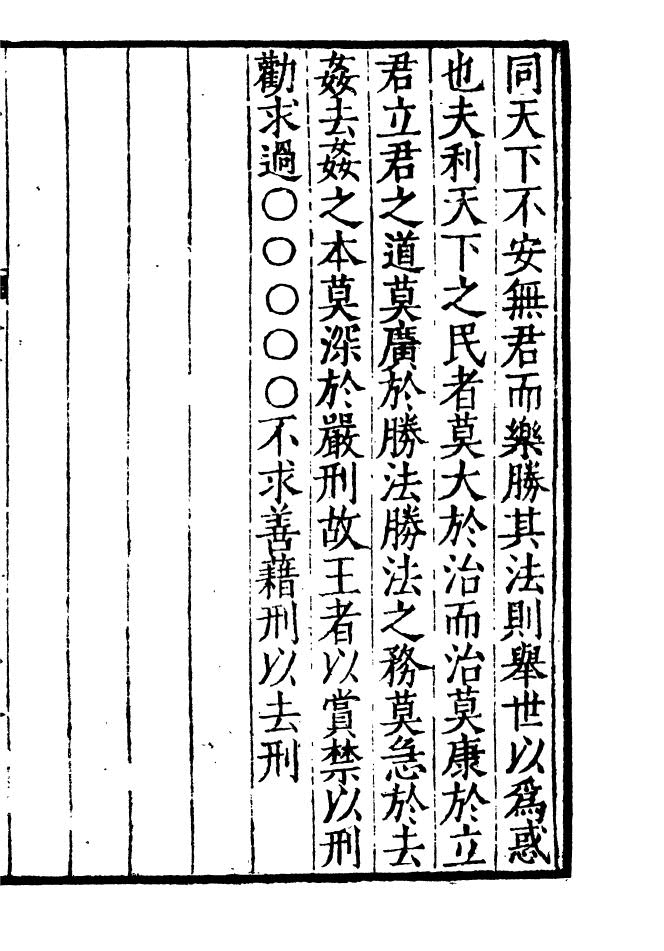 同天下不安無君而樂勝其法則舉世以爲惑
也夫利天下之民者莫大於治而治莫康於立
君立君之道莫廣於勝法勝法之務莫急於去
姦去姦之本莫深於嚴刑故王者以賞禁以刑
勸求過○○○○○不求善藉刑以去刑